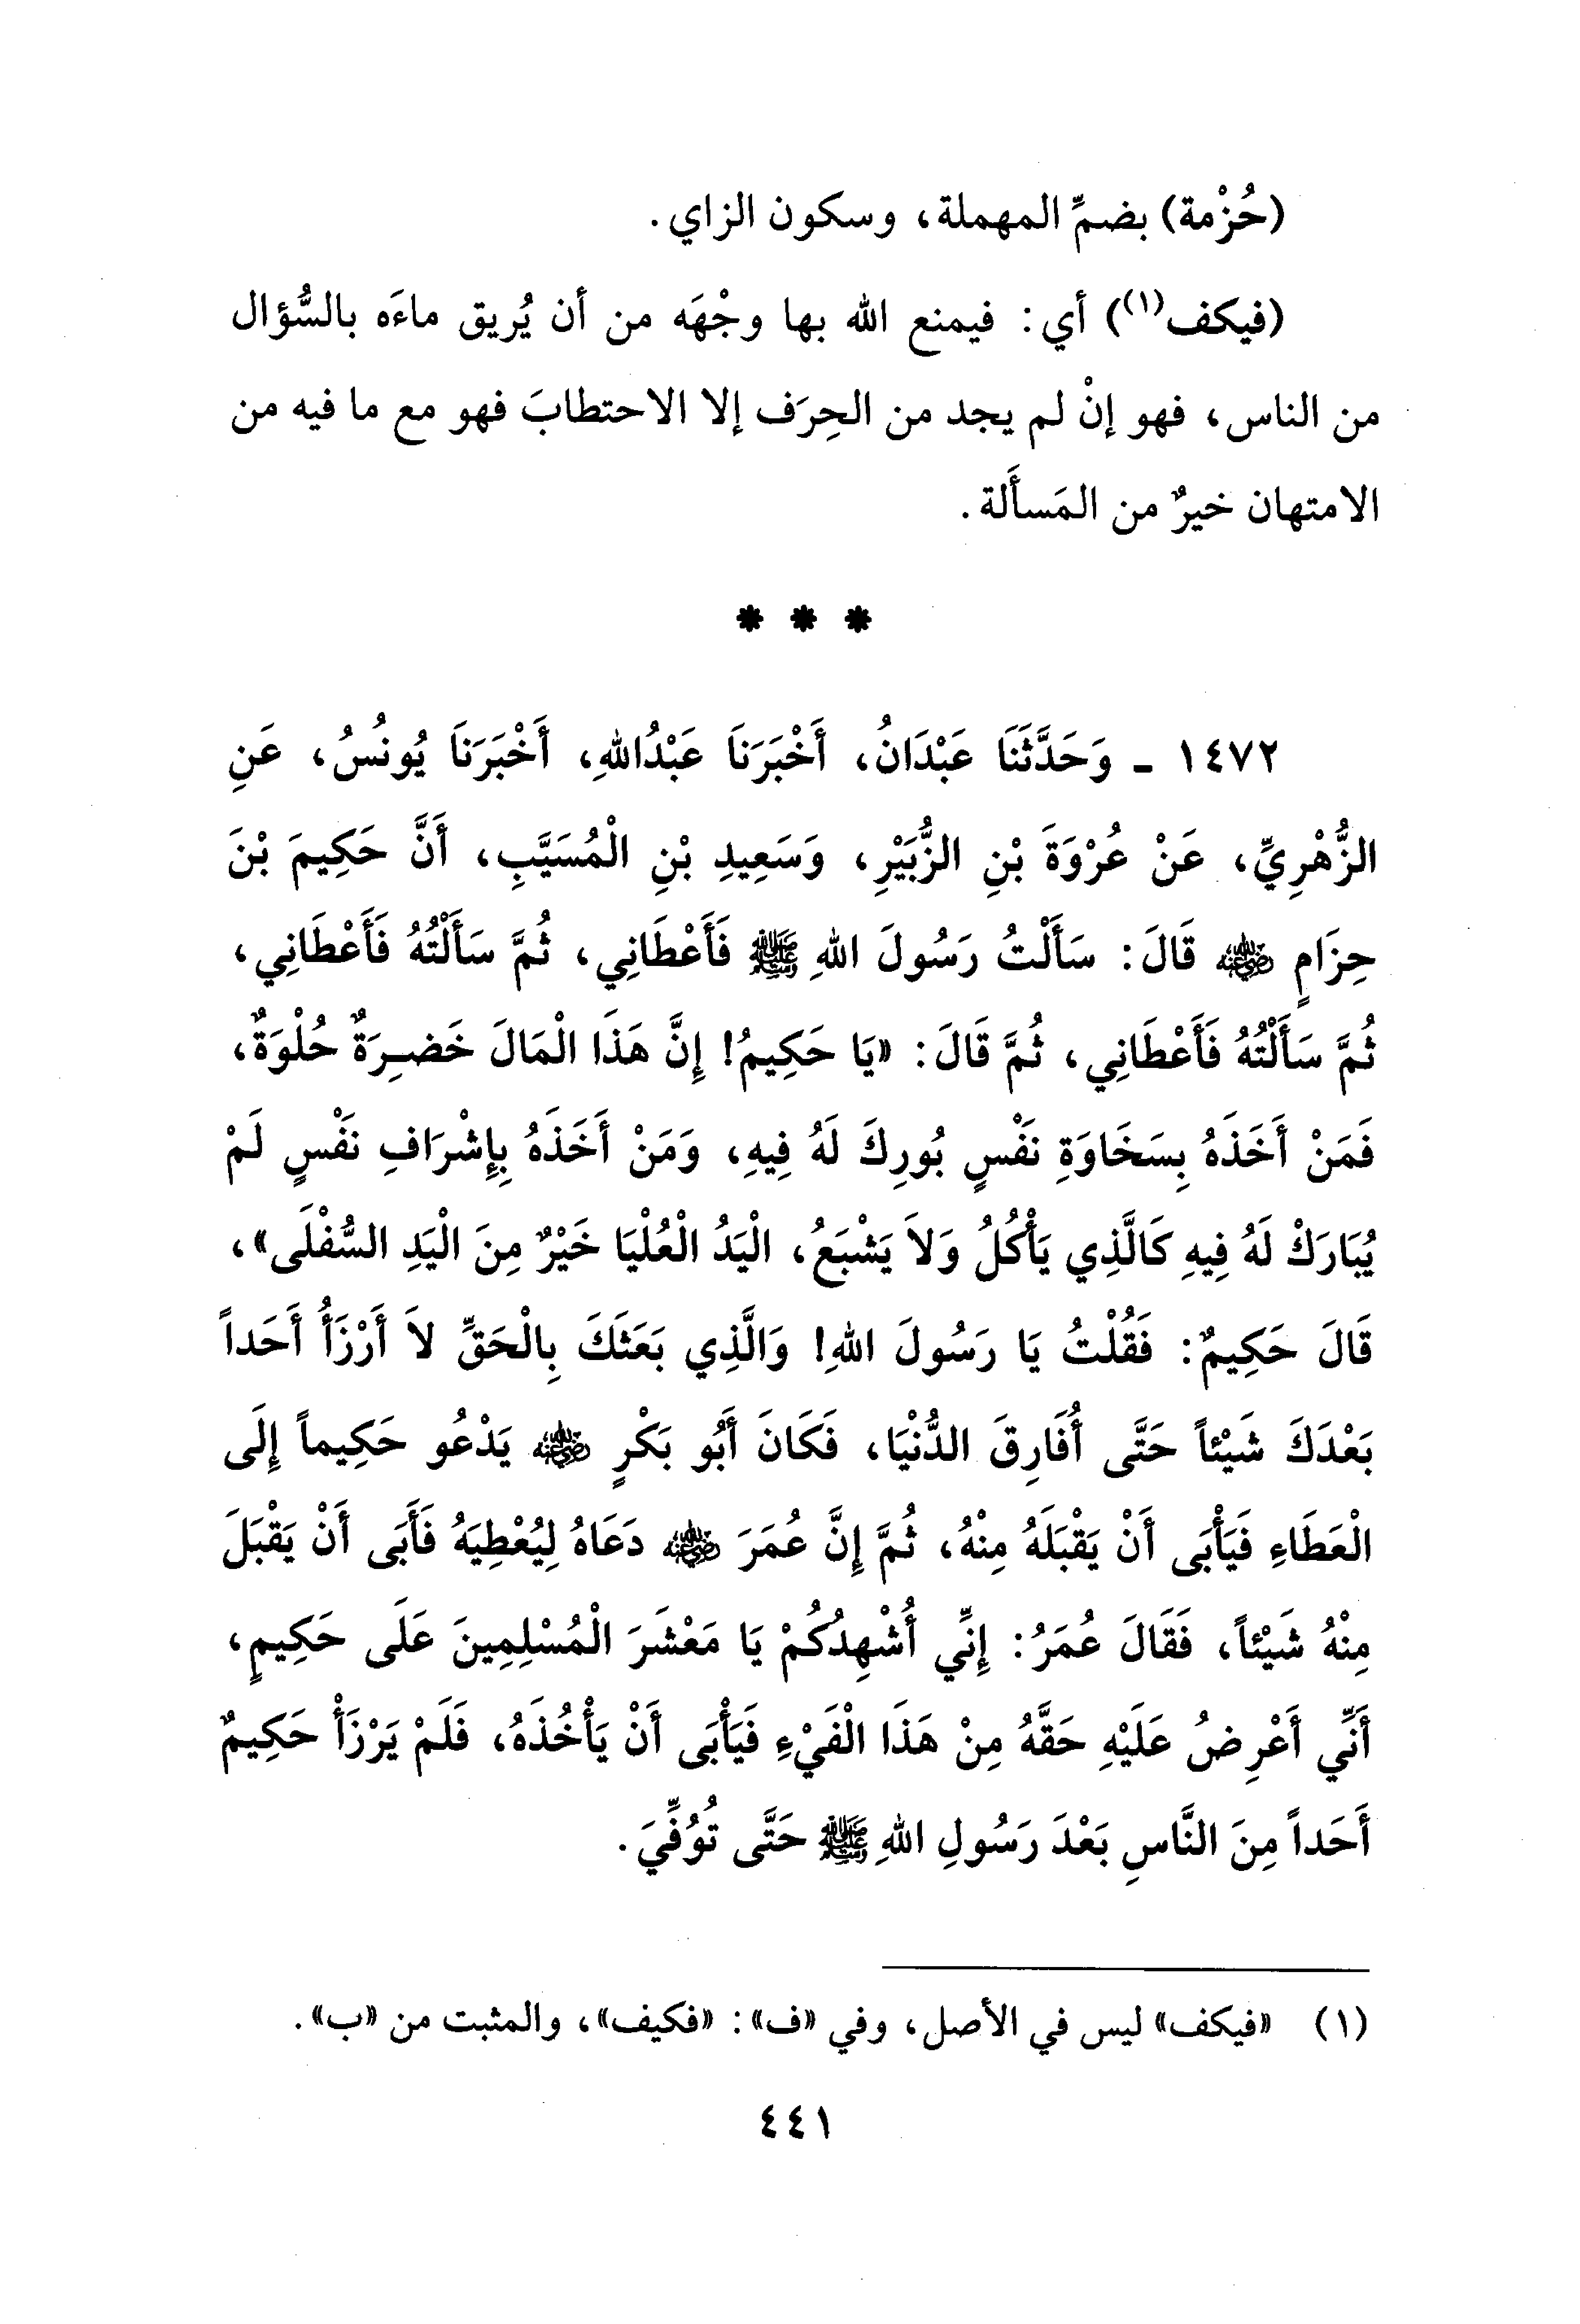 (حُزْمة) بضمِّ المهملة، وسكون الزاي.
(فيكف(١)) أي: فيمنع الله بها وجْهَه من أن يُريق ماءَه بالسُّؤال
من الناس، فهو إنْ لم يجد من الحِرَف إلا الاحتطابَ فهو مع ما فيه من
الامتهان خيرٌ من المَسأَلة.
* * *
١٤٧٢ - وَحَدَّثَنَا عَبْدَانُ، أَخْبَرَنَا عَبْدُاللهِ، أَخْبَرَنَا يُونُسُ، عَنِ
الزُّهْرِيِّ، عَنْ عُرْوَةَ بْنِ الزُّبَيْرِ، وَسَعِيدِ بْنِ الْمُسَيَّبِ، أَنَّ حَكِيمَ بْنَ
حِزَامٍ ﵁ قَالَ: سَأَلْتُ رَسُولَ اللهِ ﷺ فَأَعْطَانِي، ثُمَّ سَأَلْتُهُ فَأَعْطَانِي،
ثُمَّ سَأَلْتُهُ فَأَعْطَانِي، ثُمَّ قَالَ: «يَا حَكِيمُ! إِنَّ هَذَا الْمَالَ خَضِرَةٌ حُلْوَةٌ،
فَمَنْ أَخَذَهُ بِسَخَاوَةِ نَفْسٍ بُورِكَ لَهُ فِيهِ، وَمَنْ أَخَذَهُ بِإِشْرَافِ نَفْسٍ لَمْ
يُبَارَكْ لَهُ فِيهِ كَالَّذِي يَأْكُلُ وَلاَ يَشْبَعُ، الْيَدُ الْعُلْيَا خَيْرٌ مِنَ الْيَدِ السُّفْلَى»،
قَالَ حَكِيمٌ: فَقُلْتُ يَا رَسُولَ اللهِ! وَالَّذِي بَعَثَكَ بِالْحَقِّ لاَ أَرْزَأُ أَحَداً
بَعْدَكَ شَيْئاً حَتَّى أُفَارِقَ الدُّنْيَا، فَكَانَ أَبُو بَكْرٍ ﵁ يَدْعُو حَكِيماً إِلَى
الْعَطَاءِ فَيَأْبَى أَنْ يَقْبَلَهُ مِنْهُ، ثُمَّ إِنَّ عُمَرَ ﵁ دَعَاهُ لِيُعْطِيَهُ فَأَبَى أَنْ يَقْبَلَ
مِنْهُ شَيْئاً، فَقَالَ عُمَرُ: إِنِّي أُشْهِدُكُمْ يَا مَعْشَرَ الْمُسْلِمِينَ عَلَى حَكِيمٍ،
أَنِّي أَعْرِضُ عَلَيْهِ حَقَّهُ مِنْ هَذَا الْفَيْءِ فَيَأْبَى أَنْ يَأْخُذَهُ، فَلَمْ يَرْزَأْ حَكِيمٌ
أَحَداً مِنَ النَّاسِ بَعْدَ رَسُولِ اللهِ ﷺ حَتَّى تُوُفِّيَ.
(١) «فيكف» ليس في الأصل، وفي «ف»: «فكيف»، والمثبت من «ب».
٤٤١